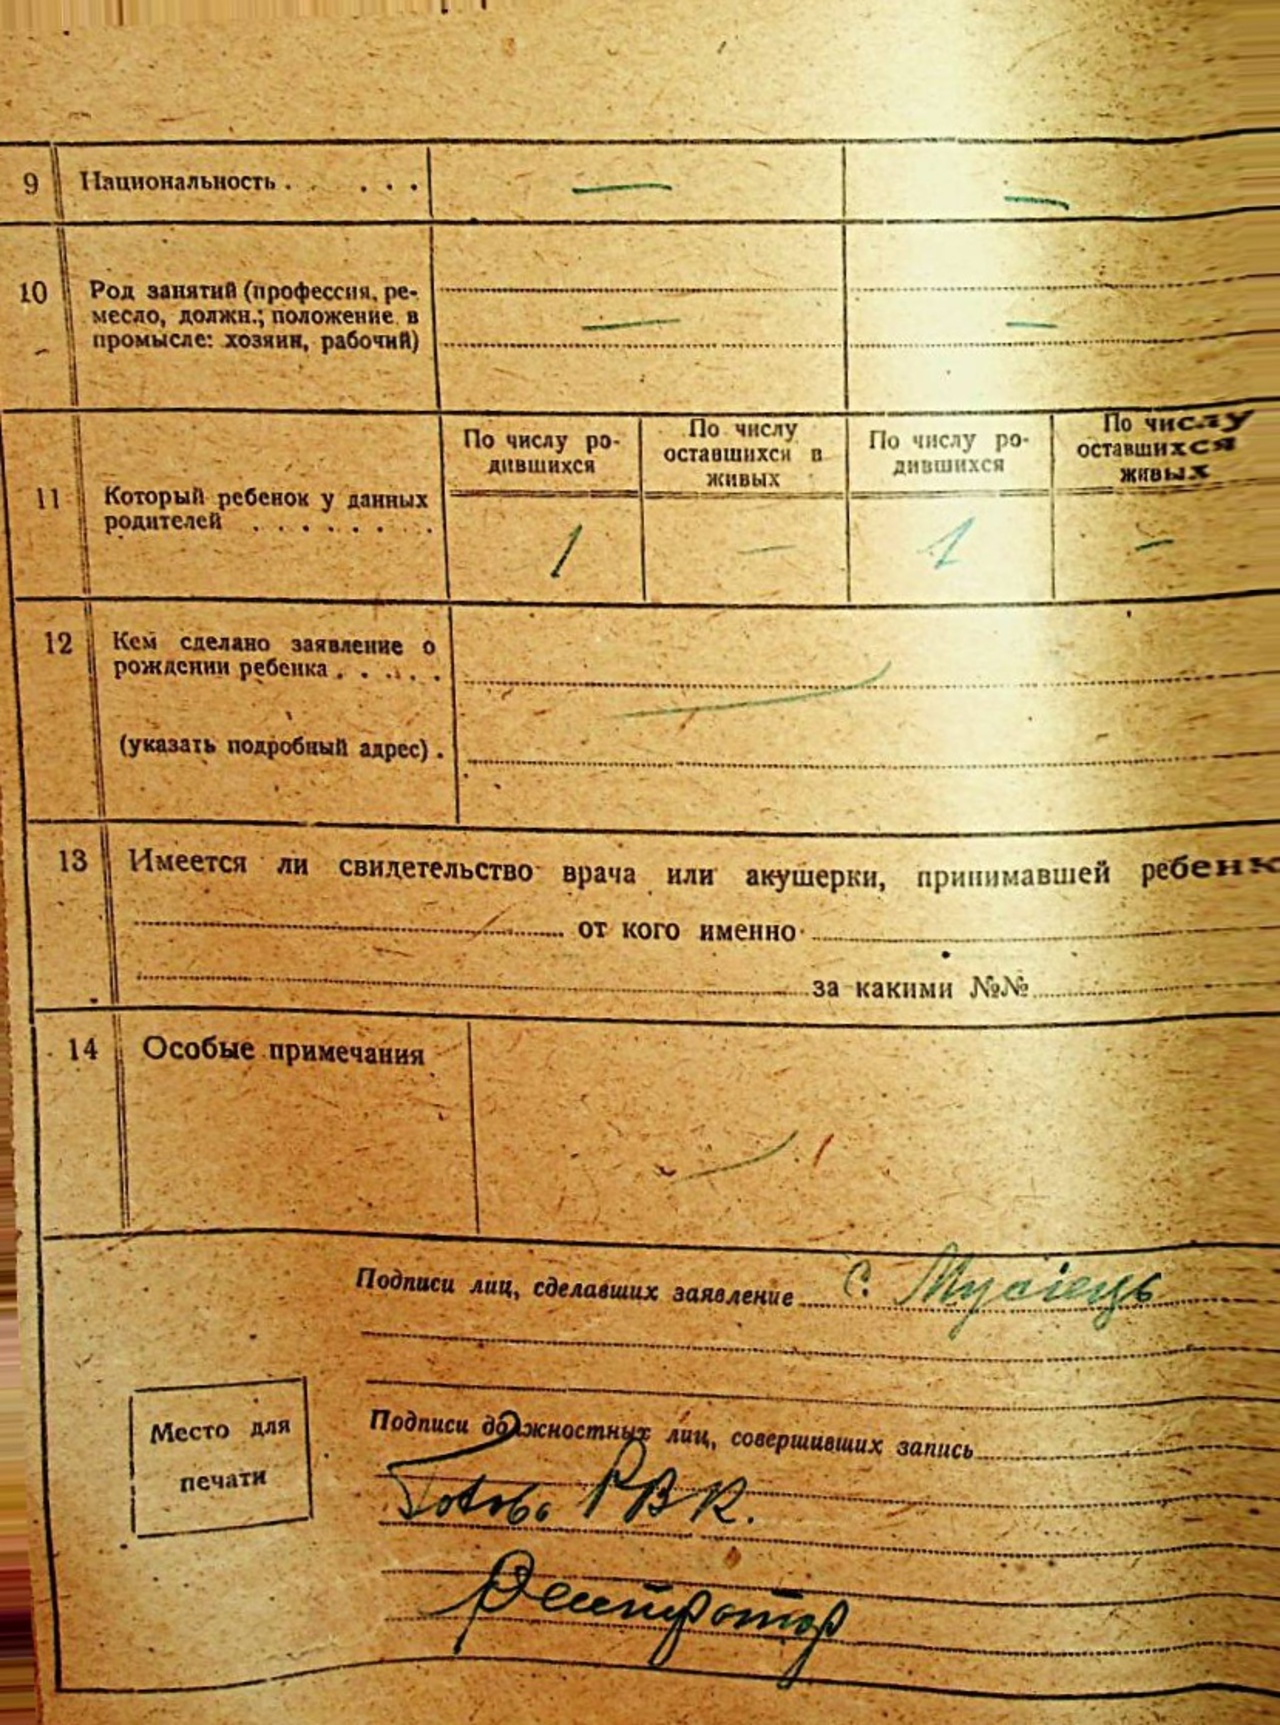 9 Национальность . . . . . — —
10 Род занятий (профессия, ре-
месло, должн.; положение в
промысле: хозяин, рабочий) — —
По числу ро-
дившихся
По числу
оставшихся в
живых
По числу ро-
дившихся
По числу
оставшихся
живых
11 Который ребенок у данных
родителей . . . . . . . .
1 — 1 —
12 Кем сделано заявление о
рождении ребенка . . . . .
(указать подробный адрес) .
13 Имеется ли свидетельство врача или акушерки, принимавшей ребенк
от кого именно
за какими №№
14 Особые примечания
Подписи лиц, сделавших заявление С. Мусіець
Место для
печати
Подписи должностных лиц, совершивших запись
РВК.